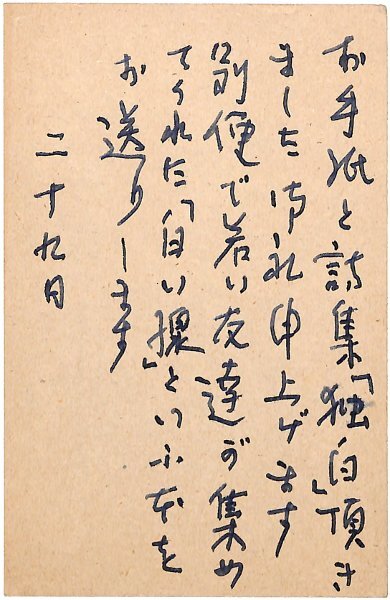 お手紙と詩集「独白」頂き
ました 御礼申上げます
別便で若い友達が集め
てくれた「白い猿」といふ本を
お送りします
二十九日